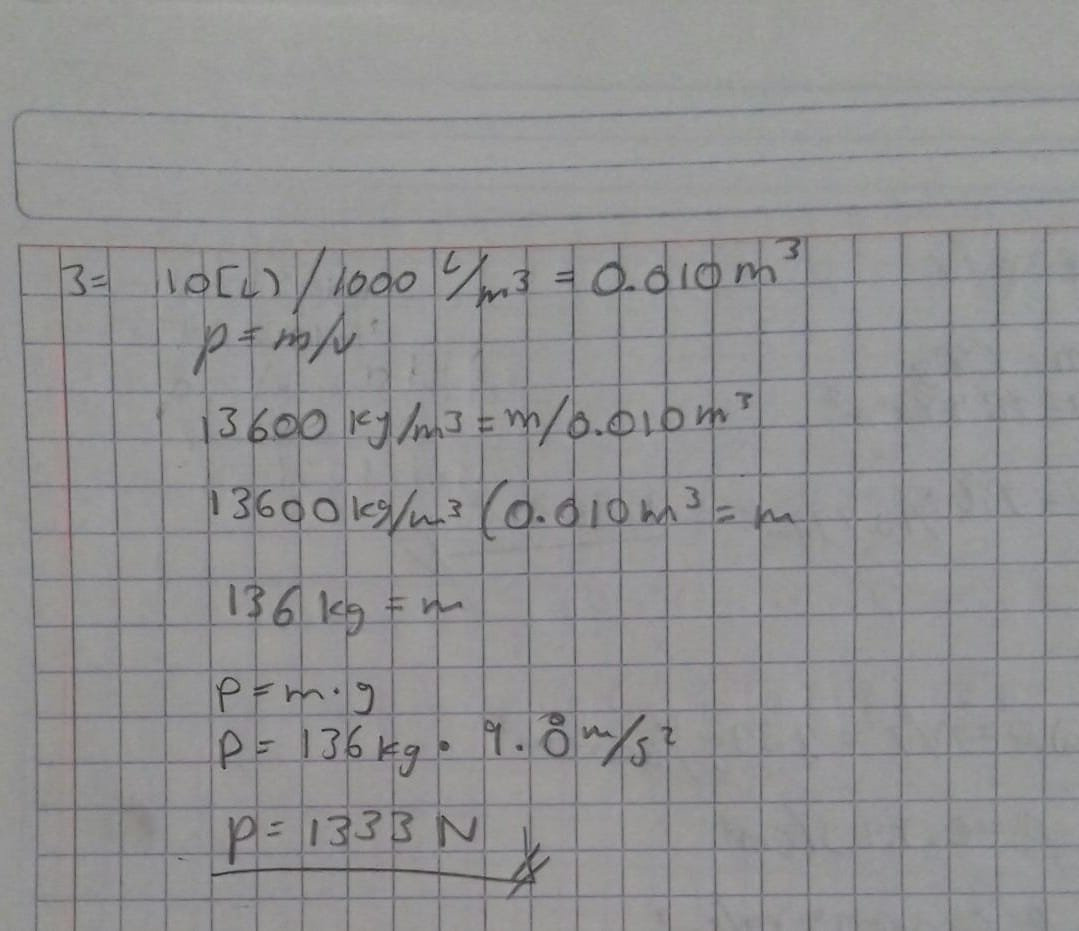 3= 10[L) / 1000 L/m3 = 0.010 m³
p = m/v
13600 kg/m3 = m/0.010 m³
13600 kg/m³ (0.010 m³ = m
136 kg = m
P = m · g
P = 136 kg · 9.8 m/s²
P = 1333 N